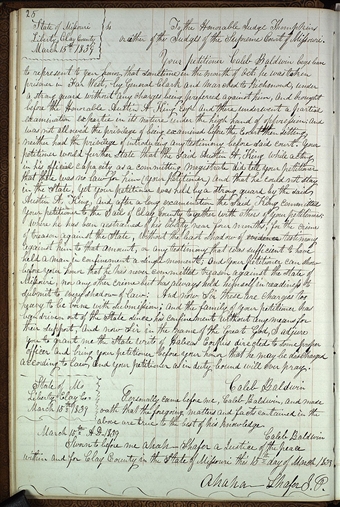 25
State of Missouri
Liberty, Clay County
March 15th 1839
To the Honorable Judge Tompkins
or either of the Judges of the Supreme Court of Missouri.
Your petitioner Caleb Baldwin begs leave
to represent to your honor, that sometime in the month of Oct. he was taken
prisoner in Far West, by General Clark and marched to Richmond, under
a strong guard without any charges being preferred against him, and brought
before the Honorable Austin A. King Esqr and there underwent a partial
examination exparte in its nature under the high hand of oppression and
was not allowed the privilege of being examined before the court then sitting,
neither had the privilege of introducing any testimony before said court. Your
petitioner would further state that the Said Austin A. King while acting
in his official capacity as a committing magistrate did tell your petitioner
that there was no law for him your petitioner, and that he could not stay
in the State, yet your petitioner was held by a strong guard by the said
Austin A. King and after a long examination the Said King committed
your petitioner to the Jail of Clay County together with others of your petitioners
where he has been restrained of his liberty near four months, for the crime
of treason against the State, without the least shadow of evidence
against him to that amount, or any testimony that was sufficient to
hold a man in confinement a single moment, and your petitioner can show
before your honor that he has never committed treason against the State of
Missouri, nor any other crime but has always held himself in readiness to
submit to every ordinance of law. And now Sir these are charges too
heavy to be borne with submission; and the family of your petitioner was
driven out of the State since his confinement without any means for
their support, and now Sir in the name of the Great God, I adjure
you to grant me the State Writ of Habeas Corpus directed to some proper
officer and bring your petitioner before your honor that he may be discharged
according to law, and your petitioner as in duty bound will ever pray.
Caleb Baldwin
State of Mo
Liberty, Clay Co.
March 15th 1839
Personally came before me, Caleb Baldwin, and made
oath that the foregoing matters and facts contained in the
above are true to the best of his knowledge.
Caleb Baldwin
March 15th A.D. 1839
Sworn to before me Abraham Shafer a Justice of the peace
within and for Clay County in the State of Missouri this 15th day of March 1839.
Abraham Shafer J. P.